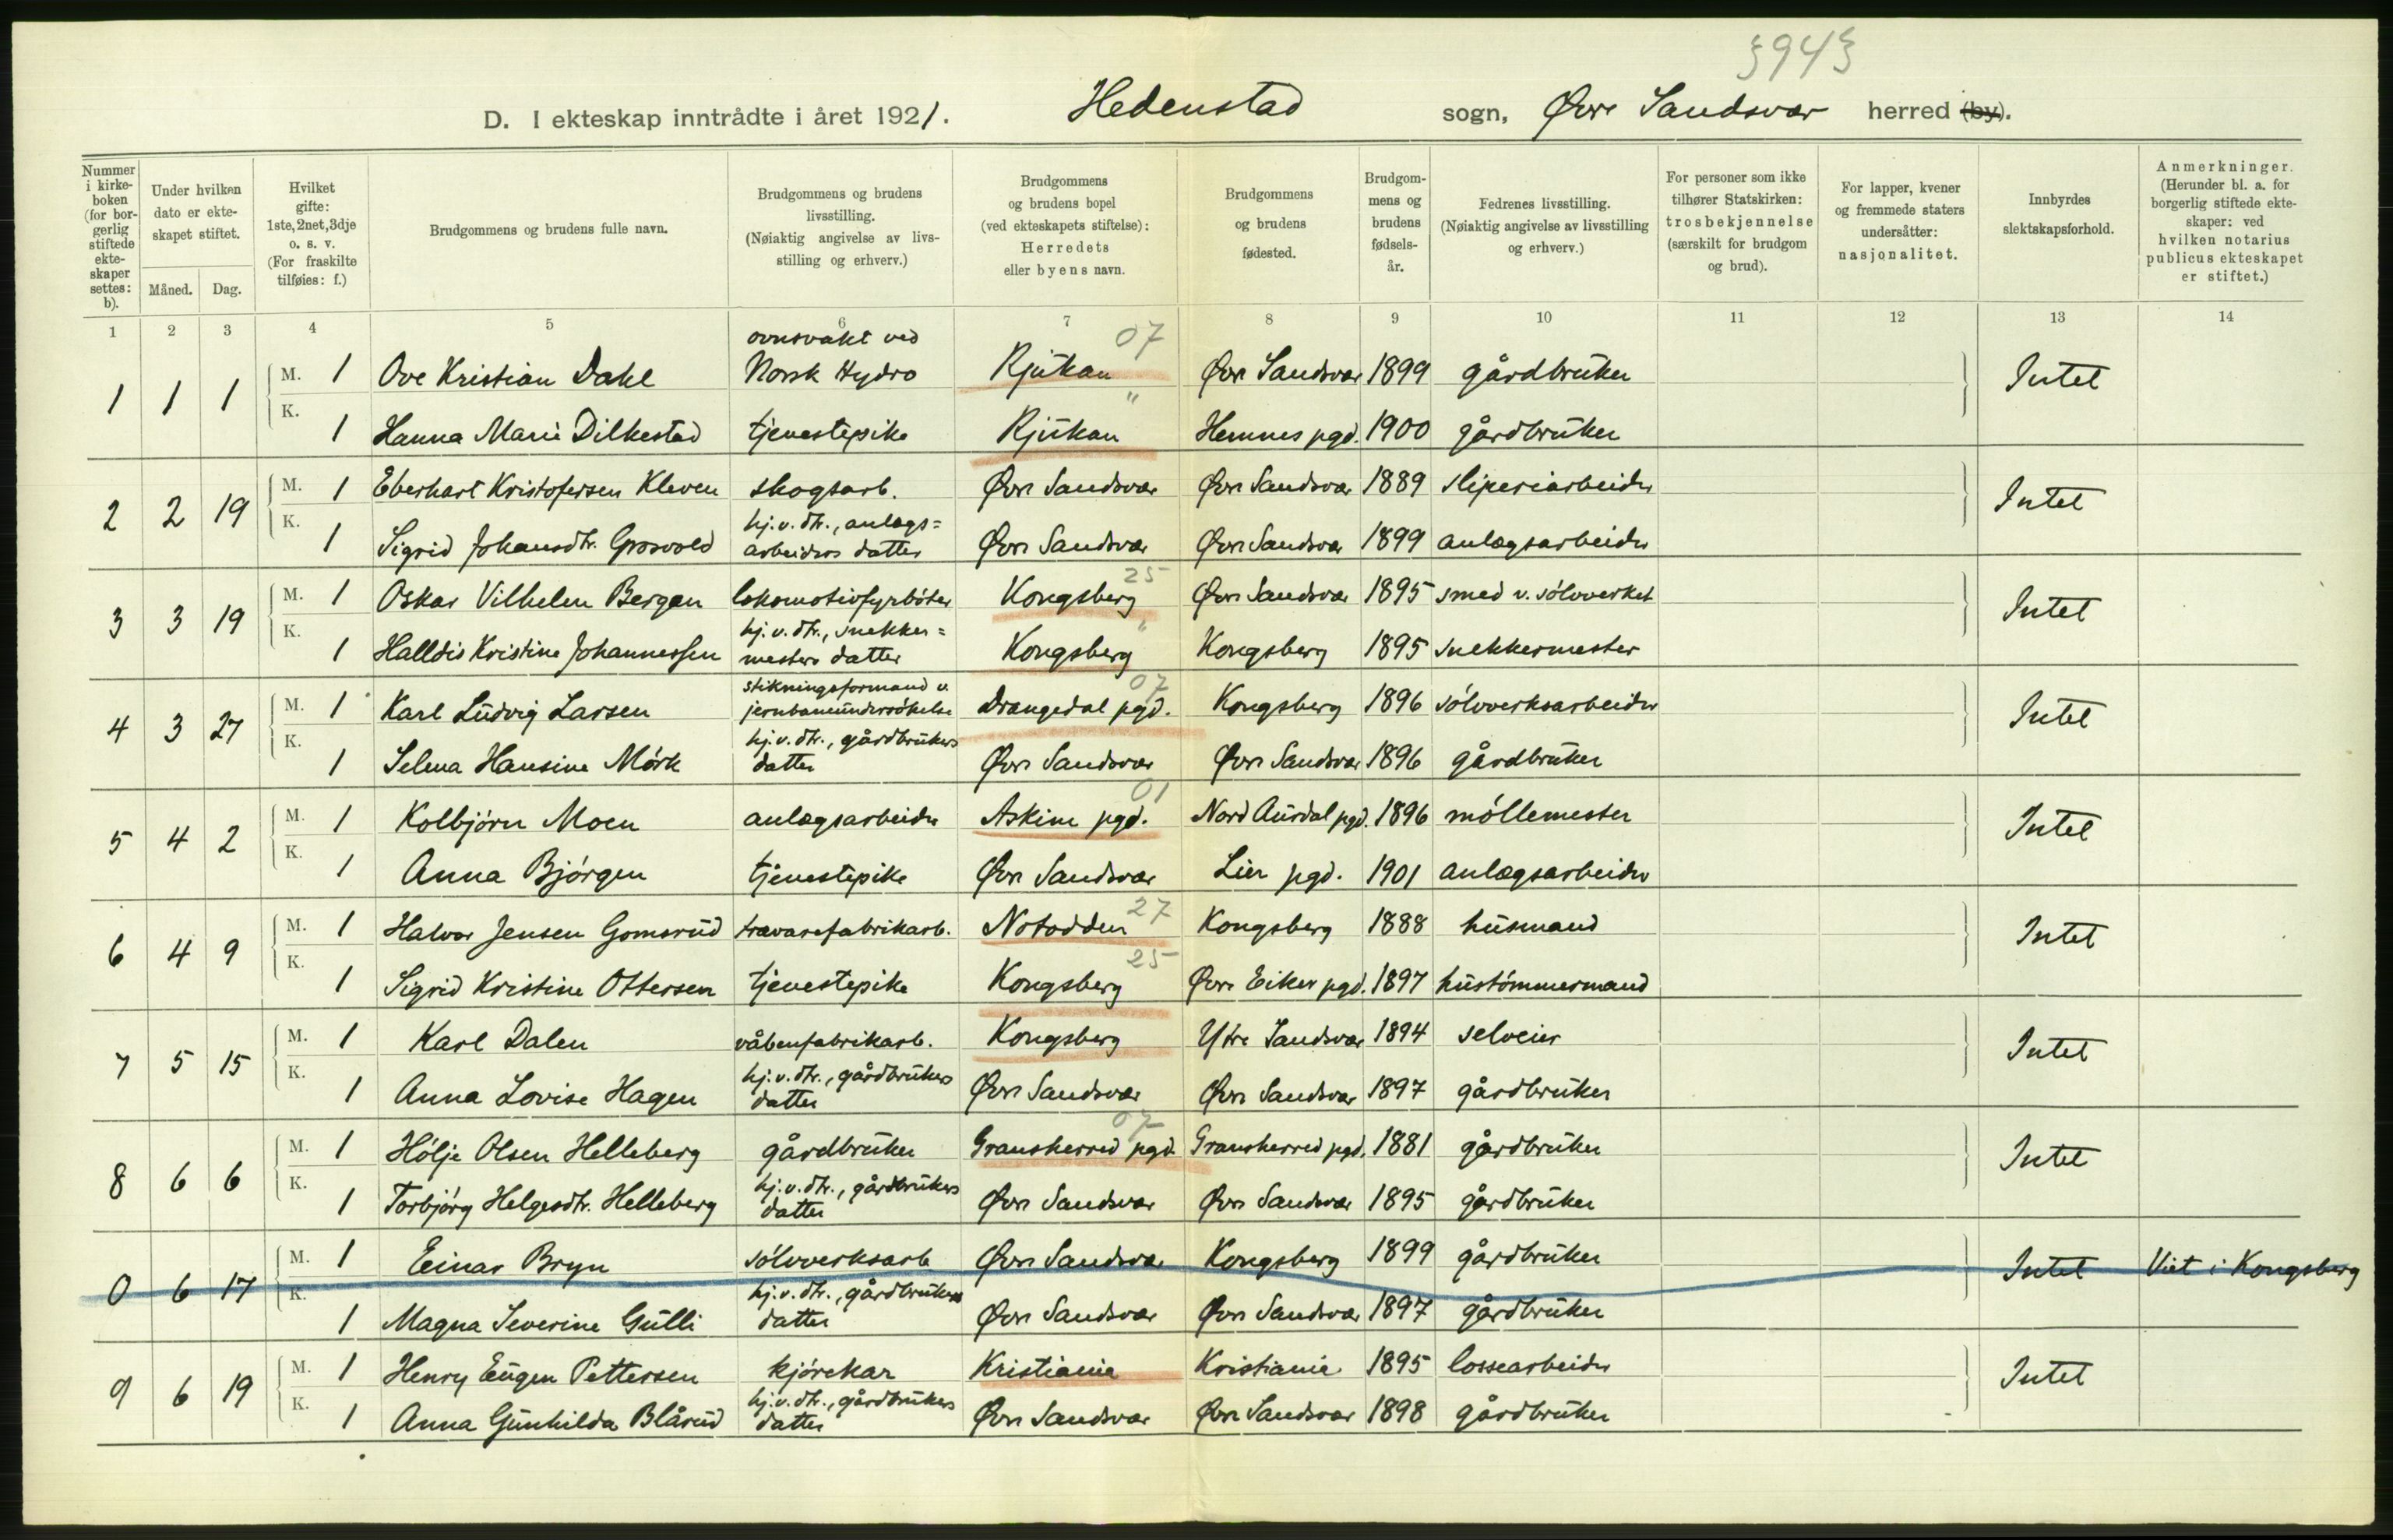 }94}
D. I ekteskap inntrådte i året 1921. Hedenstad sogn, Øvre Sandsvær herred (by).
Nummer i kirkeboken (for borgerlig stiftede ekteskaper settes: b). Under hvilken dato er ekteskapet stiftet. Måned. Dag. Hvilket gifte: 1ste, 2net, 3dje o. s. v. (For fraskilte tilføies: f.) Brudgommens og brudens fulle navn. Brudgommens og brudens livsstilling. (Nøiaktig angivelse av livsstilling og erhverv.) Brudgommens og brudens bopel (ved ekteskapets stiftelse): Herredets eller byens navn. Brudgommens og brudens fødested. Brudgommens og brudens fødselsår. Fedrenes livsstilling. (Nøiaktig angivelse av livsstilling og erhverv.) For personer som ikke tilhører Statskirken: trosbekjennelse (særskilt for brudgom og brud). For lapper, kvener og fremmede staters undersåtter: nasjonalitet. Innbyrdes slektskapsforhold. Anmerkninger. (Herunder bl. a. for borgerlig stiftede ekteskaper: ved hvilken notarius publicus ekteskapet er stiftet.)
1 2 3 4 5 6 7 8 9 10 11 12 13 14
1 1 1 M. 1 Ove Kristian Dahl ovnsvakt ved Norsk Hydro Rjukan 07 Øvre Sandsvær 1899 gårdbruker Intet
K. 1 Hanna Marie Dilkestad tjenestepike Rjukan " Hemnes pgd. 1900 gårdbruker
2 2 19 M. 1 Eberhart Kristofersen Kleven skogsarb. Øvre Sandsvær Øvre Sandsvær 1889 sliperiarbeider Intet
K. 1 Sigrid Johansdtr. Grosvold hj.v. dtr., anlægs= arbeiders datter Øvre Sandsvær Øvre Sandsvær 1899 anlægsarbeider
3 3 19 M. 1 Oskar Vilhelm Bergan lokomotivfyrbøter Kongsberg 25 Øvre Sandsvær 1895 smed v. sølvverket Intet
K. 1 Halldis Kristine Johannessen hj.v. dtr., snekker= mesters datter Kongsberg " Kongsberg 1895 snekkermester
4 3 27 M. 1 Karl Ludvig Larsen stikningsformand v. jernbaneundersøkelse Drangedal pgd. 07 Kongsberg 1896 sølvverksarbeider Intet
K. 1 Selma Hansine Mørk hj.v. dtr., gårdbrukers datter Øvre Sandsvær Øvre Sandsvær 1896 gårdbruker
5 4 2 M. 1 Kolbjørn Moen anlægsarbeider Askim pgd. 01 Nord Aurdal pgd. 1896 møllemester Intet
K. 1 Anna Bjørgen tjenestepike Øvre Sandsvær Lier pgd. 1901 anlægsarbeider
6 4 9 M. 1 Halvor Jensen Gomsrud trævarefabrikarb. Notodden 27 Kongsberg 1888 husmand Intet
K. 1 Sigrid Kristine Ottersen tjenestepike Kongsberg 25 Øvre Eiker pgd. 1897 hustømmermand
7 5 15 M. 1 Karl Dalen våbenfabrikarb. Kongsberg Ytre Sandsvær 1894 selveier Intet
K. 1 Anna Lovise Hagen hj.v. dtr., gårdbrukers datter Øvre Sandsvær Øvre Sandsvær 1897 gårdbruker
8 6 6 M. 1 Hølje Olsen Helleberg gårdbruker Gransherred pgd. 07 Gransherred pgd. 1881 gårdbruker Intet
K. 1 Torbjørg Helgesdtr. Helleberg hj.v. dtr., gårdbrukers datter Øvre Sandsvær Øvre Sandsvær 1895 gårdbruker
0 6 17 M. 1 Einar Bryn sølvverksarb Øvre Sandsvær Kongsberg 1899 gårdbruker Intet Viet i Kongsberg
K. 1 Magna Severine Gulli hj.v. dtr., gårdbrukers datter Øvre Sandsvær Øvre Sandsvær 1897 gårdbruker
9 6 19 M. 1 Henry Eugen Pettersen kjørekar Kristiania Kristiania 1895 lossearbeider Intet
K. 1 Anna Gunhilda Blårud hj.v. dtr., gårdbrukers datter Øvre Sandsvær Øvre Sandsvær 1898 gårdbruker